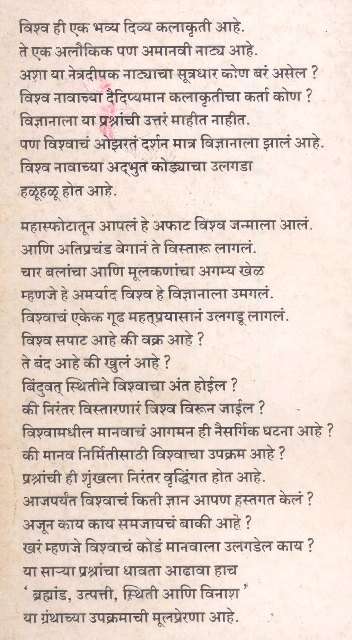 विश्व ही एक भव्य दिव्य कलाकृती आहे.
ते एक अलौकिक पण अमानवी नाट्य आहे.
अशा या नेत्रदीपक नाट्याचा सूत्रधार कोण बरं असेल ?
विश्व नावाच्या दैदिप्यमान कलाकृतीचा कर्ता कोण ?
विज्ञानाला या प्रश्नांची उत्तरं माहीत नाहीत.
पण विश्वाचं ओझरतं दर्शन मात्र विज्ञानाला झालं आहे.
विश्व नावाच्या अदभुत कोड्याचा उलगडा
हळूहळू होत आहे.
महास्फोटातून आपलं हे अफाट विश्व जन्माला आलं.
आणि अतिप्रचंड वेगानं ते विस्तारू लागलं.
चार बलांचा आणि मूलकणांचा अगम्य खेळ
म्हणजे हे अमर्याद विश्व हे विज्ञानाला उमगलं.
विश्वाचं एकेक गूढ महत्प्रयासानं उलगडू लागलं.
विश्व सपाट आहे की वक्र आहे ?
ते बंद आहे की खुलं आहे ?
बिंदुवत् स्थितीने विश्वाचा अंत होईल ?
की निरंतर विस्तारणारं विश्व विरून जाईल ?
विश्वामधील मानवाचं आगमन ही नैसर्गिक घटना आहे ?
की मानव निर्मितीसाठी विश्वाचा उपक्रम आहे ?
प्रश्नांची ही शृंखला निरंतर वृद्धिंगत होत आहे.
आजपर्यंत विश्वाचं किती ज्ञान आपण हस्तगत केलं ?
अजून काय काय समजायचं बाकी आहे ?
खरं म्हणजे विश्वाचं कोडं मानवाला उलगडेल काय ?
या साऱ्या प्रश्नांचा धावता आढावा हाच
' ब्रह्मांड, उत्पत्ती, स्थिती आणि विनाश '
या ग्रंथाच्या उपक्रमाची मूलप्रेरणा आहे.